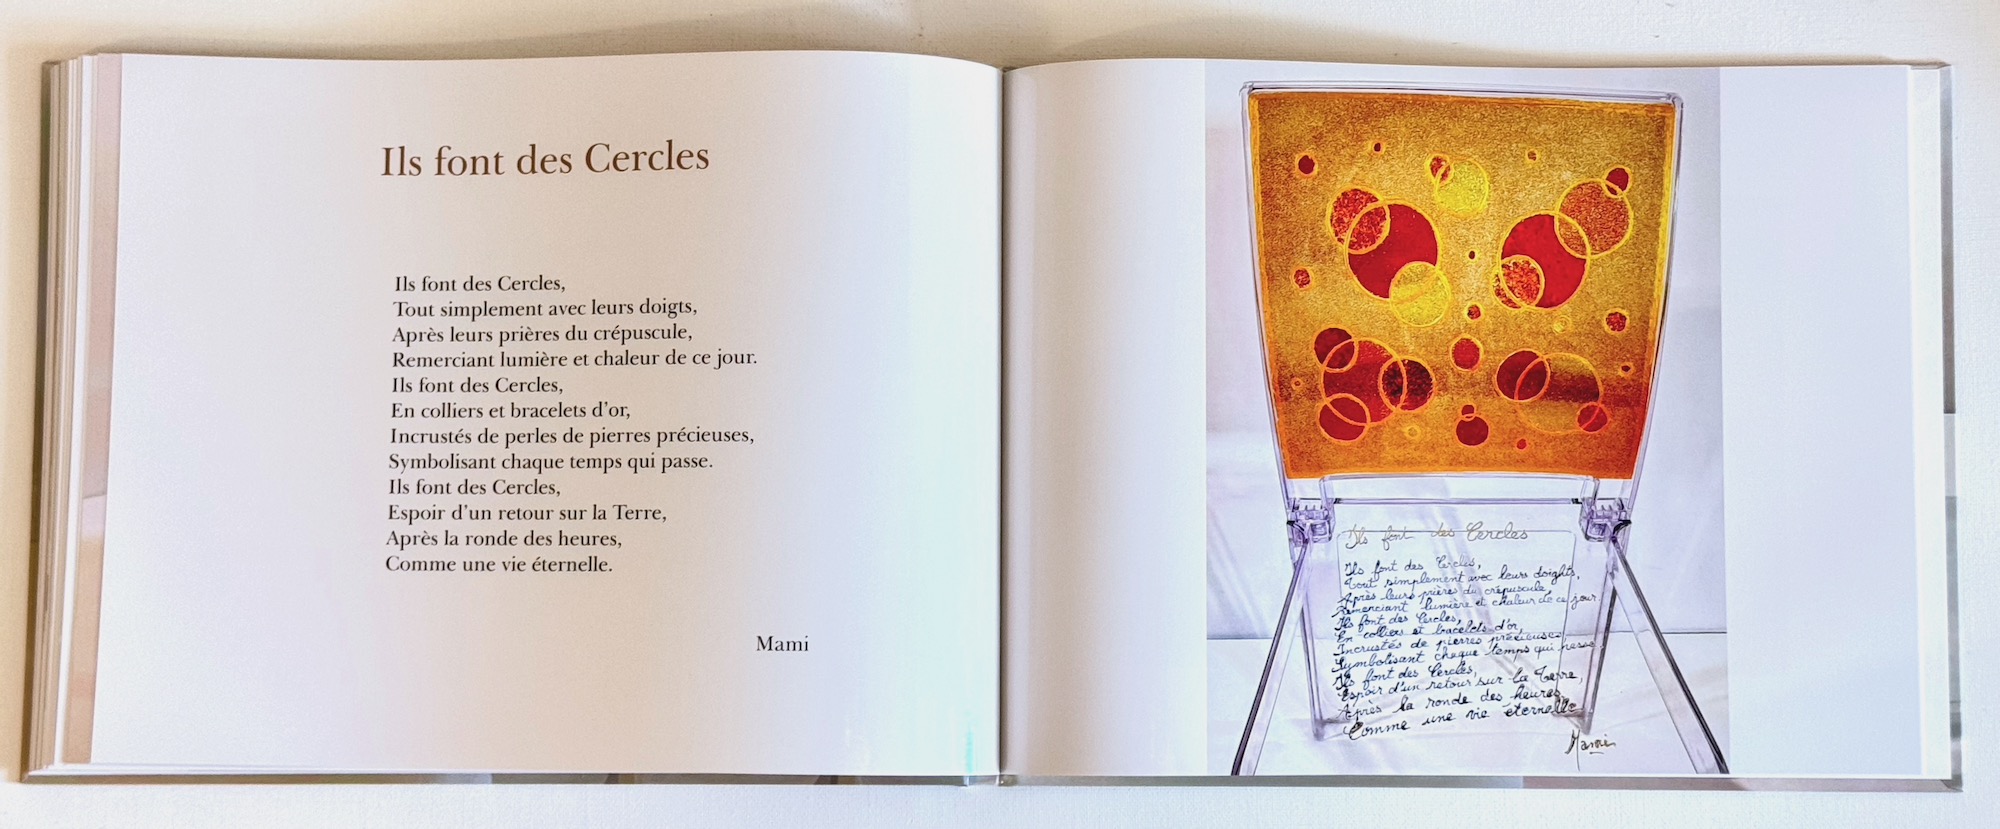 Ils font des Cercles
Ils font des Cercles,
Tout simplement avec leurs doigts,
Après leurs prières du crépuscule,
Remerciant lumière et chaleur de ce jour.
Ils font des Cercles,
En colliers et bracelets d’or,
Incrustés de perles de pierres précieuses,
Symbolisant chaque temps qui passe.
Ils font des Cercles,
Espoir d’un retour sur la Terre,
Après la ronde des heures,
Comme une vie éternelle.
Mami
Ils font des Cercles
Ils font des Cercles,
Tout simplement avec leurs doights,
Après leurs prières du crépuscule,
Remerciant lumière et chaleur de ce jour.
Ils font des Cercles,
En colliers et bracelets d'or,
Incrustés de pierres précieuses
Symbolisant chaque temps qui passe.
Ils font des Cercles,
Espoir d'un retour sur la Terre,
Après la ronde des heures,
Comme une vie éternelle
Mami